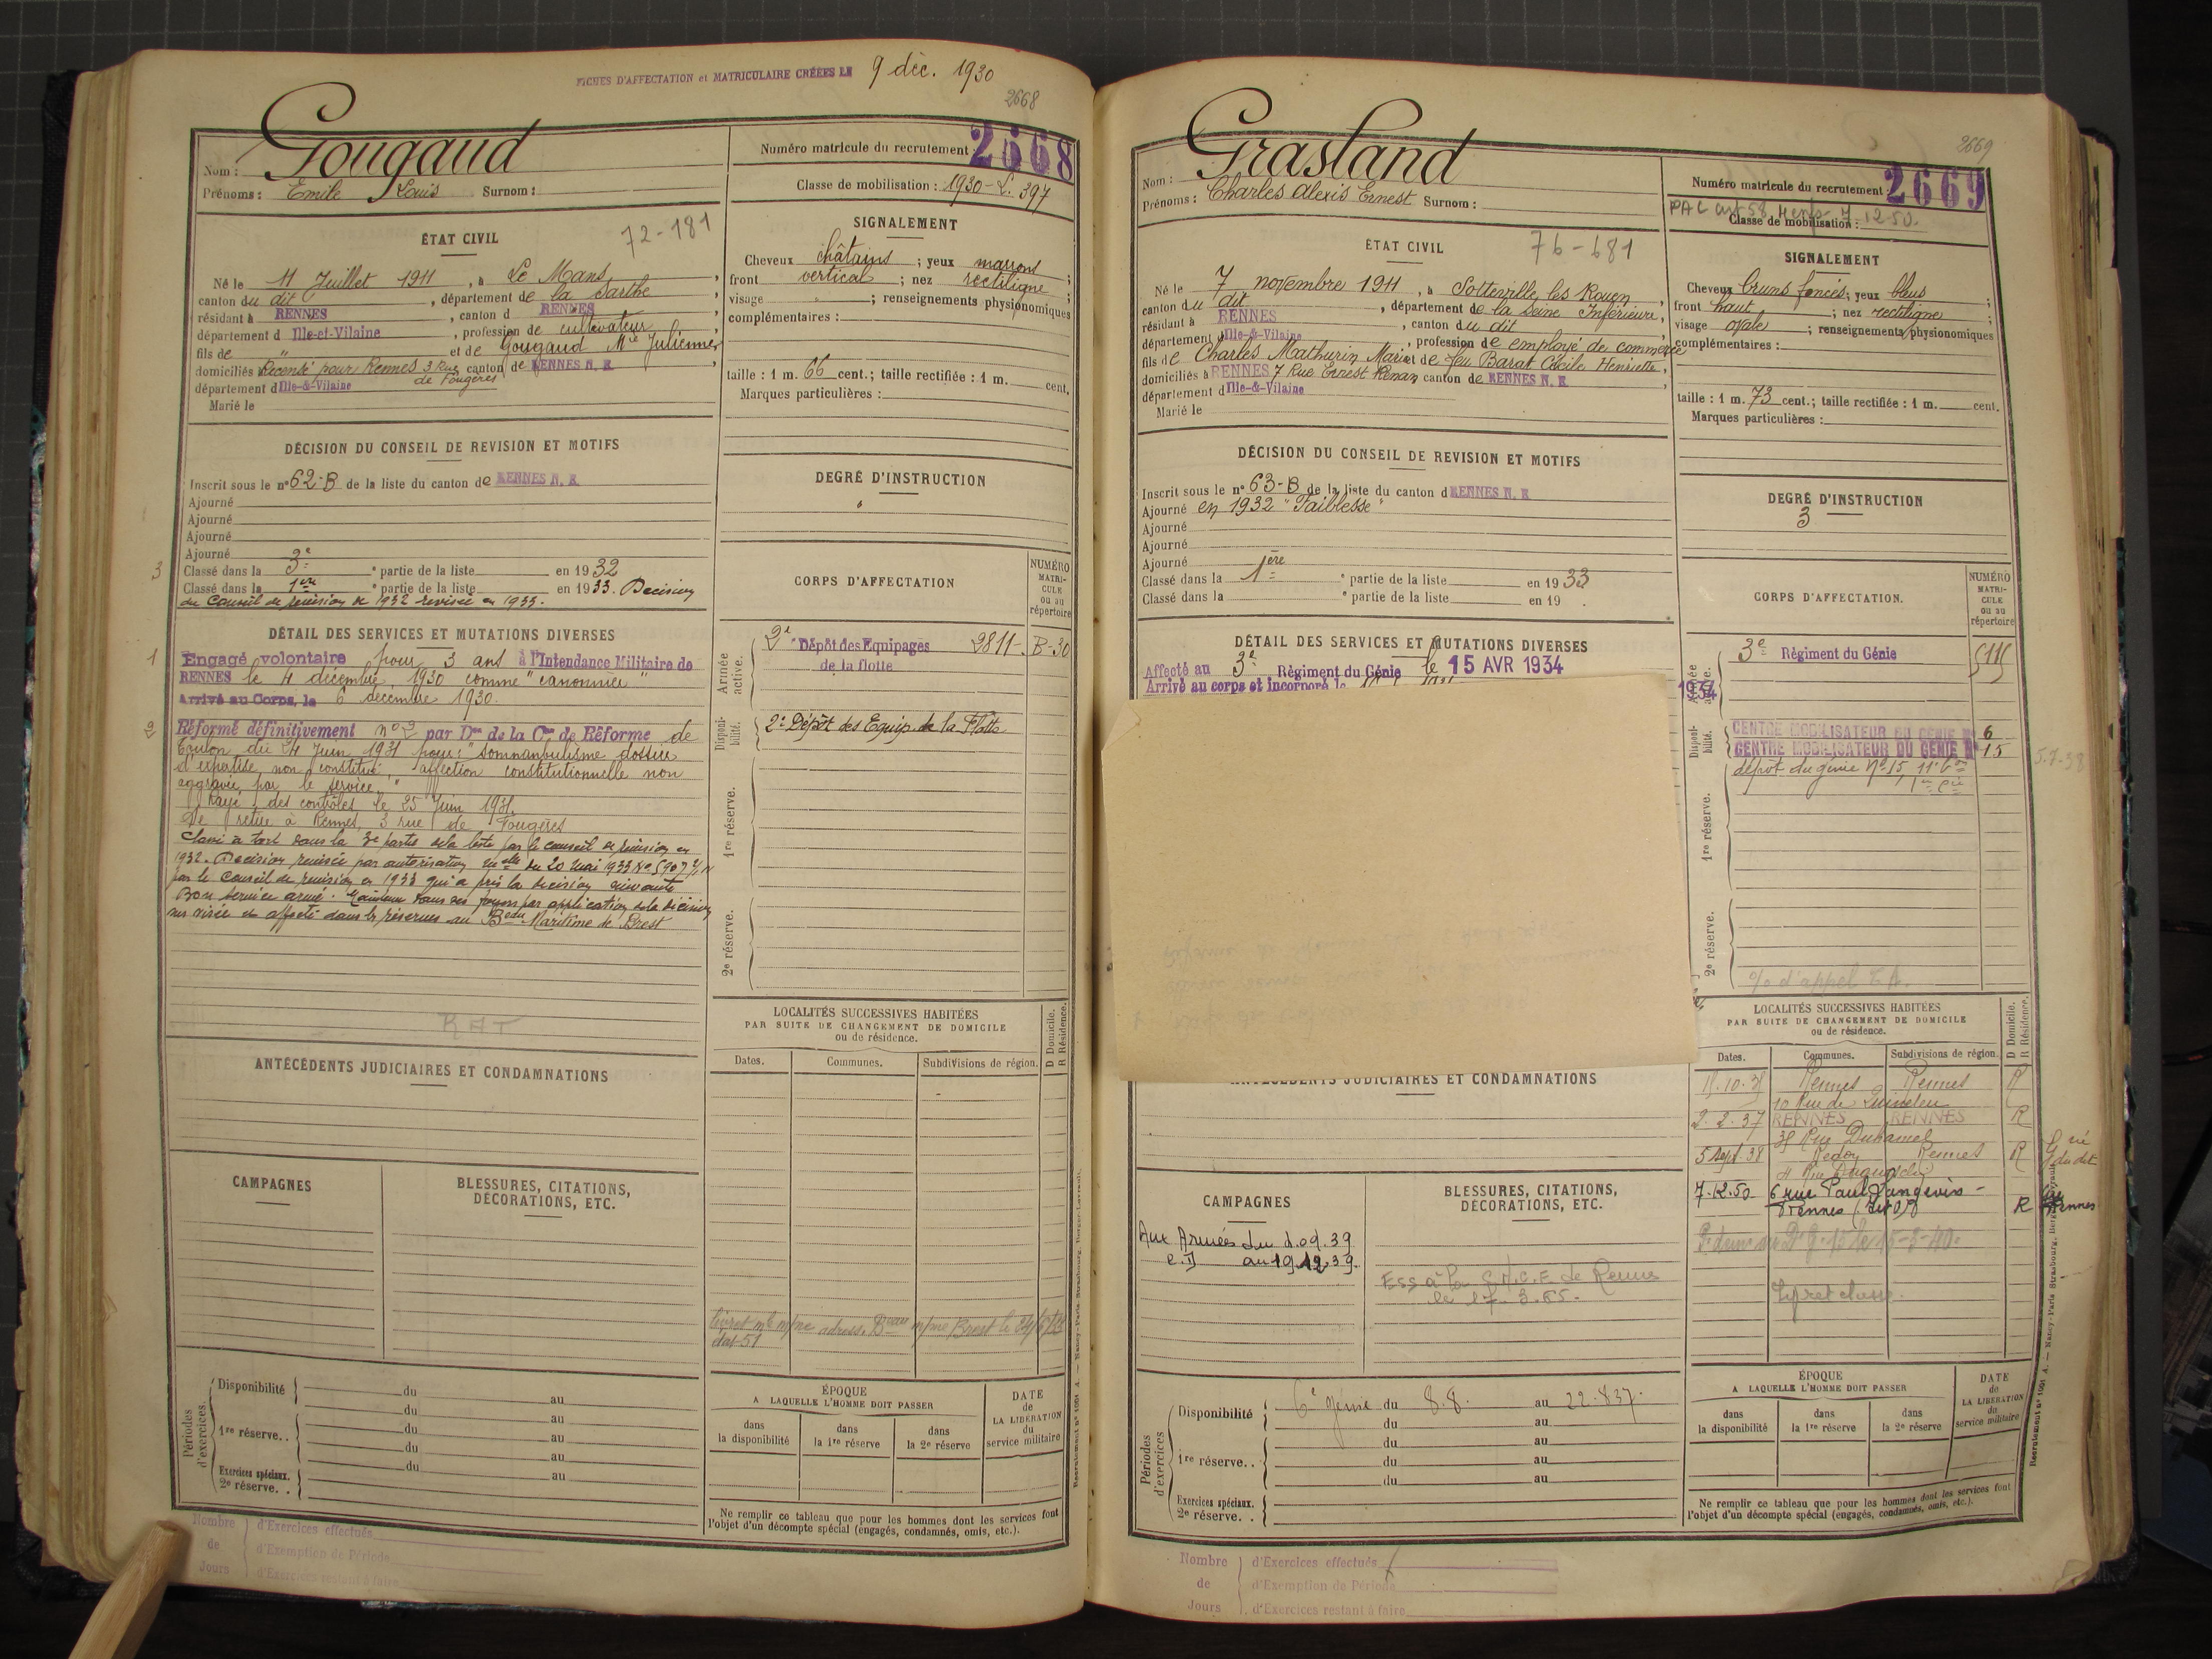 FICHES D'AFFECTATION et MATRICULAIRE CRÉÉES LE 9 déc. 1930
2668
Nom : Gougaud
Prénoms : Emile Louis Surnom :
Numéro matricule du recrutement : 2668
Classe de mobilisation : 1930 - L. 397
ÉTAT CIVIL
72-181
Né le 11 Juillet 1911, à Le Mans,
canton du dit, département de la Sarthe
résidant à RENNES, canton d RENNES
département d Ille-et-Vilaine, profession de cultivateur
fils de " et de Gougaud Mie Julienne
domiciliés Recensé pour Rennes 3 Rue de Fougères canton de RENNES N. E.
département d Ille-&-Vilaine
Marié le
SIGNALEMENT
Cheveux châtains ; yeux marrons ;
front vertical ; nez rectiligne ;
visage " ; renseignements physionomiques
complémentaires :
taille : 1 m. 66 cent.; taille rectifiée : 1 m. cent.
Marques particulières :
DÉCISION DU CONSEIL DE REVISION ET MOTIFS
Inscrit sous le n° 62-B de la liste du canton de RENNES N. E.
Ajourné
Ajourné
Ajourné
Ajourné
3 Classé dans la 3e partie de la liste en 1932
Classé dans la 1ère partie de la liste en 1933. Décision
du Conseil de révision de 1932 revisée en 1933.
DEGRÉ D'INSTRUCTION
CORPS D'AFFECTATION
NUMÉRO MATRICULE ou au répertoire
DÉTAIL DES SERVICES ET MUTATIONS DIVERSES
1 Engagé volontaire pour 3 ans à l'Intendance Militaire de
RENNES le 4 décembre 1930 comme "canonnier"
Arrivé au Corps, le 6 décembre 1930.
2 Réformé définitivement n° 2 par Don de la Con de Réforme de
Toulon du 24 Juin 1931 pour: "somnambulisme dossier
d'expertise non constitué, affection constitutionnelle non
aggravée par le service"
Rayé des contrôles le 25 Juin 1931.
Se retire à Rennes, 3 rue de Fougères
Classé à tort dans la 3e partie de la liste par le conseil de révision en
1932. Décision revisée par autorisation mелle du 20 Mai 1933
par le Conseil de révision en 1933 qui a pris la décision suivante
Bon service armé. Maintenu dans ses foyers par application de la décision
sus visée et affecté dans les réserves au Beau Maritime de Brest
RAT
Armée active.
2e Dépôt des Equipages 2811- B-30
de la flotte
Disponibilité.
2e Dépôt des Equip. de la Flotte
1re réserve.
2e réserve.
LOCALITÉS SUCCESSIVES HABITÉES
PAR SUITE DE CHANGEMENT DE DOMICILE
ou de résidence.
D Domicile.
R Résidence.
Dates. Communes. Subdivisions de région.
ANTÉCÉDENTS JUDICIAIRES ET CONDAMNATIONS
CAMPAGNES
BLESSURES, CITATIONS,
DÉCORATIONS, ETC.
Périodes d'exercices.
Disponibilité du au
du au
1re réserve. . du au
du au
du au
Exercices spéciaux.
2e réserve. .
ÉPOQUE
A LAQUELLE L'HOMME DOIT PASSER
dans la disponibilité
dans la 1re réserve
dans la 2e réserve
DATE de LA LIBÉRATION du service militaire
Ne remplir ce tableau que pour les hommes dont les services font
l'objet d'un décompte spécial (engagés, condamnés, omis, etc.).
Nombre de Jours
d'Exercices effectués
d'Exemption de Période
d'Exercices restant à faire
2669
Nom : Grasland
Prénoms : Charles Alexis Ernest Surnom :
Numéro matricule du recrutement : 2669
Classe de mobilisation :
ÉTAT CIVIL
76-681
Né le 7 novembre 1911, à Sotteville les Rouen,
canton du dit, département de la Seine Inférieure,
résidant à RENNES, canton du dit
département d Ille-&-Vilaine, profession de employé de commerce
fils de Charles Mathurin Marie et de feu Barat Cécile Henriette,
domiciliés à RENNES 7 Rue Ernest Renan canton de RENNES N. E.
département d Ille-&-Vilaine
Marié le
SIGNALEMENT
Cheveux bruns foncés; yeux bleus ;
front haut ; nez rectiligne ;
visage ovale ; renseignements physionomiques
complémentaires :
taille : 1 m. 73 cent.; taille rectifiée : 1 m. cent.
Marques particulières :
DÉCISION DU CONSEIL DE REVISION ET MOTIFS
Inscrit sous le n° 63-B de la liste du canton d RENNES N. E
Ajourné en 1932 "Faiblesse"
Ajourné
Ajourné
Ajourné
Classé dans la 1ère partie de la liste en 1933
Classé dans la partie de la liste en 19 .
DEGRÉ D'INSTRUCTION
3
CORPS D'AFFECTATION.
NUMÉRO MATRICULE ou au répertoire
DÉTAIL DES SERVICES ET MUTATIONS DIVERSES
Affecté au 3e Régiment du Génie le 15 AVR 1934
Arrivé au corps et incorporé le
3e Régiment du Génie
CENTRE MOBILISATEUR DU GÉNIE N° 6
CENTRE MOBILISATEUR DU GÉNIE N° 15
5.7.38
dépôt du génie N° 15 11e Bon
1re Cie
1re réserve.
2e réserve.
LOCALITÉS SUCCESSIVES HABITÉES
PAR SUITE DE CHANGEMENT DE DOMICILE
ou de résidence.
D Domicile.
R Résidence.
Dates. Communes. Subdivisions de région.
Rennes Rennes R
2.2.37 RENNES RENNES R
Rue Duhamel
5 Sept. 38 Redon Rennes R
7.12.50 6 rue Paul Langevin -
Rennes R
ANTÉCÉDENTS JUDICIAIRES ET CONDAMNATIONS
CAMPAGNES
Aux Armées du 2.09.39
au 19.12.39.
BLESSURES, CITATIONS,
DÉCORATIONS, ETC.
Livret classé.
Périodes d'exercices
Disponibilité 6e génie du 8.8. au 22.8.37.
du au
1re réserve. . du au
du au
du au
Exercices spéciaux.
2e réserve. .
ÉPOQUE
A LAQUELLE L'HOMME DOIT PASSER
dans la disponibilité
dans la 1re réserve
dans la 2e réserve
DATE de LA LIBÉRATION du service militaire
Ne remplir ce tableau que pour les hommes dont les services font
l'objet d'un décompte spécial (engagés, condamnés, omis, etc.).
Nombre de Jours
d'Exercices effectués
d'Exemption de Période
d'Exercices restant à faire